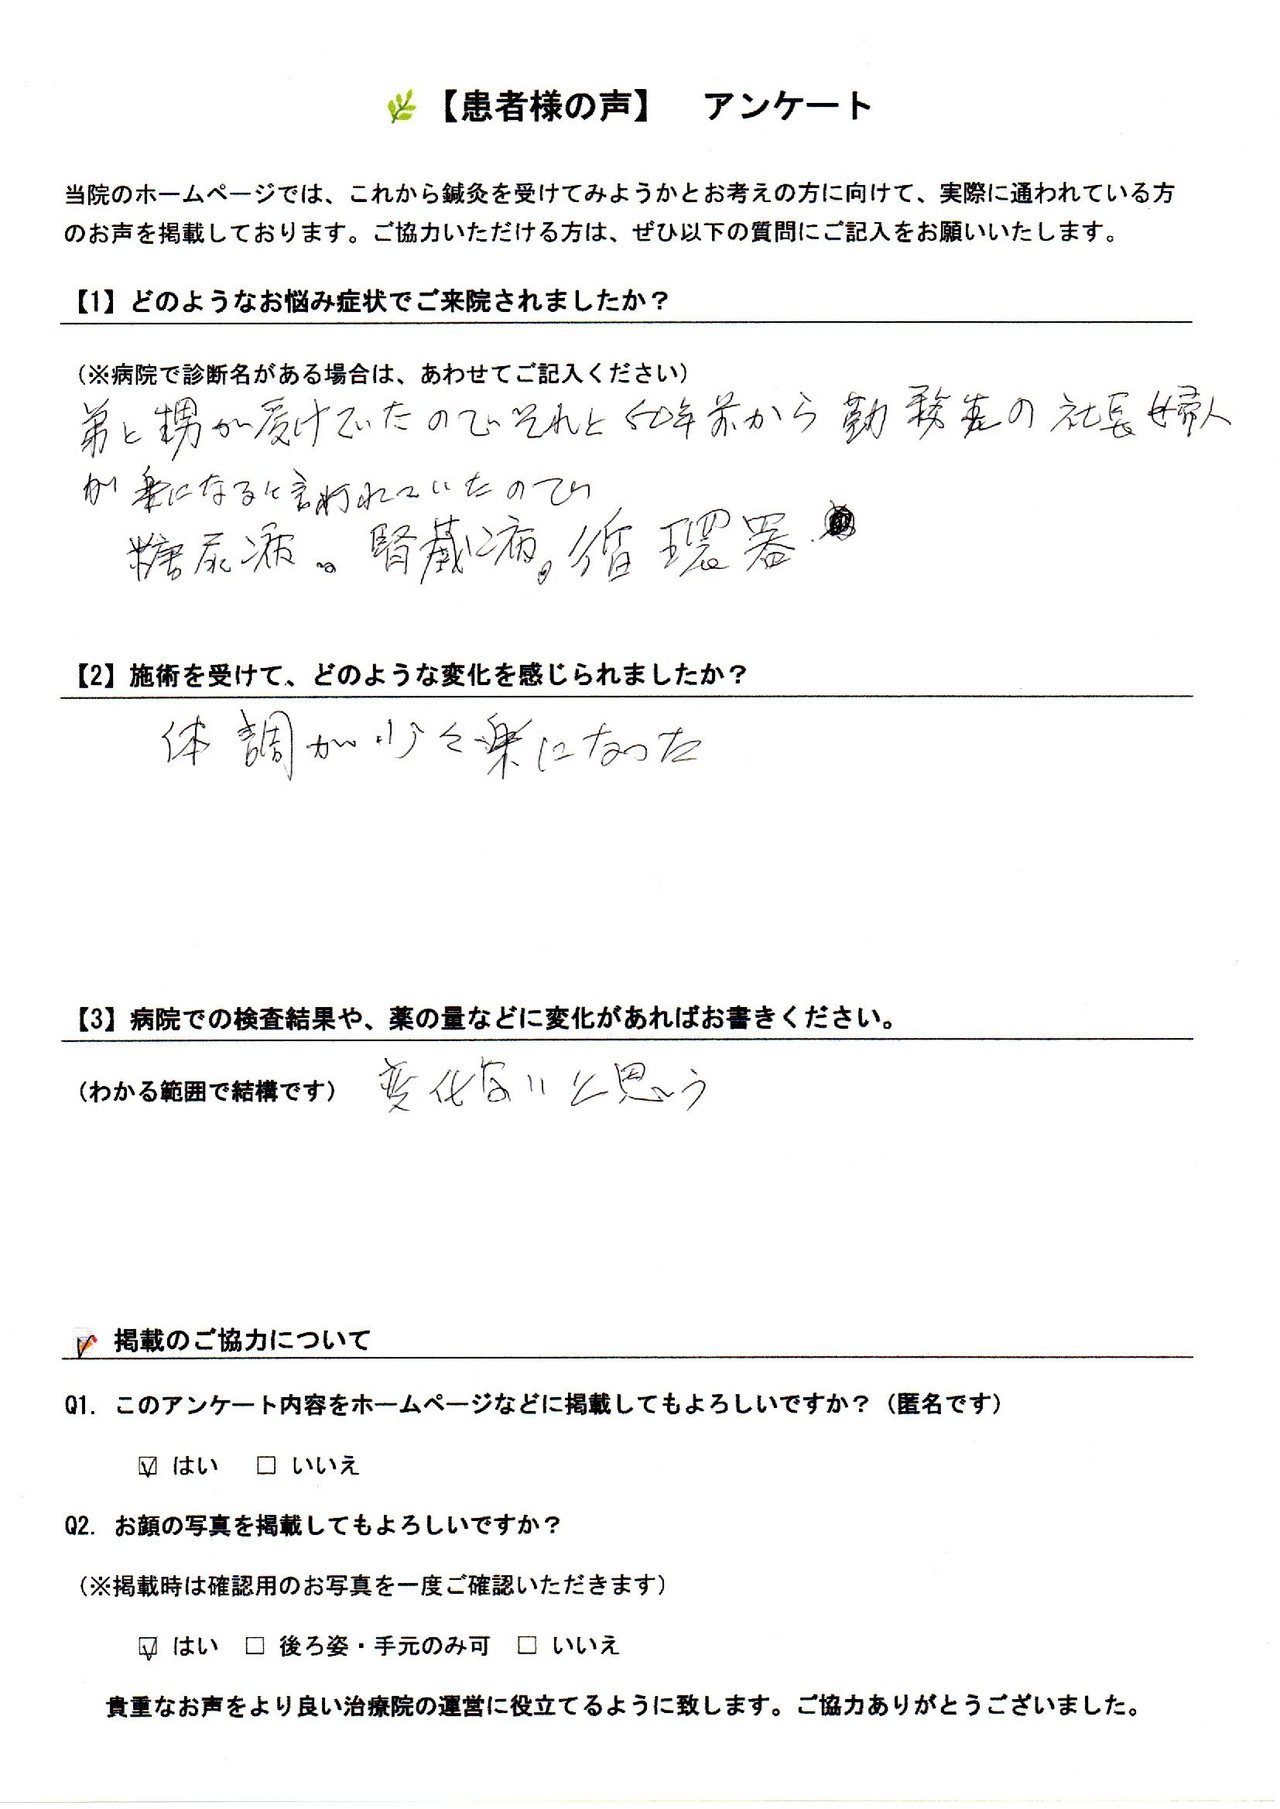 【患者様の声】 アンケート
当院のホームページでは、これから鍼灸を受けてみようかとお考えの方に向けて、実際に通われている方
のお声を掲載しております。ご協力いただける方は、ぜひ以下の質問にご記入をお願いいたします。
【1】どのようなお悩み症状でご来院されましたか？
（※病院で診断名がある場合は、あわせてご記入ください）
弟と甥が受けていたのでそれと50年前から勤務先の社長婦人
が楽になると言われていたので
糖尿病。腎臓病。循環器
【2】施術を受けて、どのような変化を感じられましたか？
体調が少々楽になった
【3】病院での検査結果や、薬の量などに変化があればお書きください。
（わかる範囲で結構です） 変化ないと思う
掲載のご協力について
Q1. このアンケート内容をホームページなどに掲載してもよろしいですか？（匿名です）
☑ はい □ いいえ
Q2. お顔の写真を掲載してもよろしいですか？
（※掲載時は確認用のお写真を一度ご確認いただきます）
☑ はい □ 後ろ姿・手元のみ可 □ いいえ
貴重なお声をより良い治療院の運営に役立てるように致します。ご協力ありがとうございました。